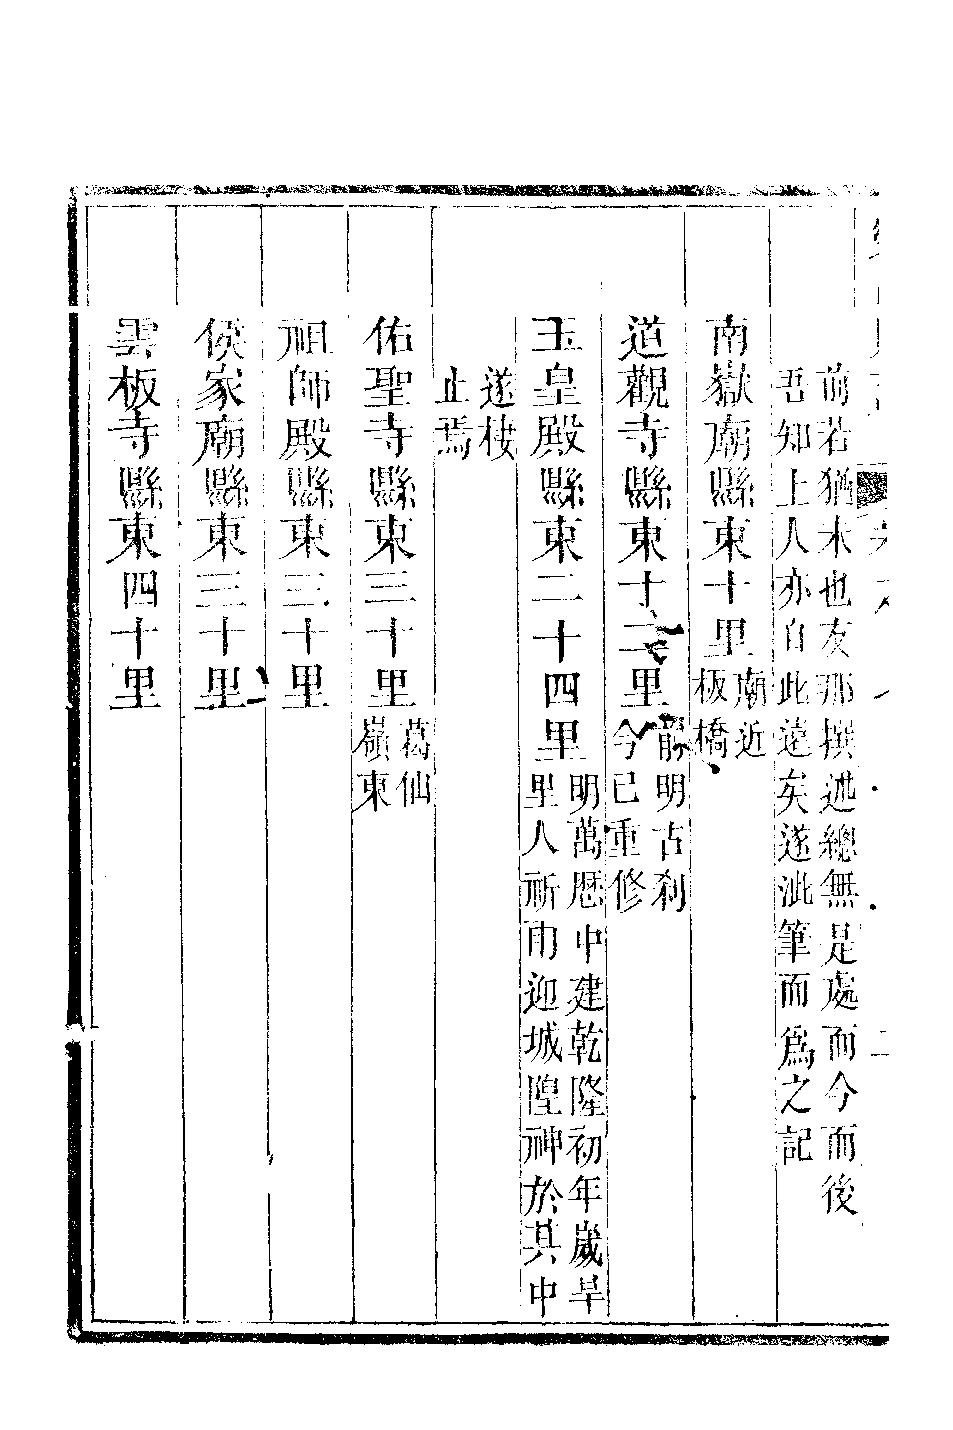 前若猶木也友那撰述總無是處而今而後
吾知上人亦自此遠矣遂泚筆而爲之記
南嶽廟縣東十里廟近
板橋
道觀寺縣東十二里前明古刹
今已重修
玉皇殿縣東二十四里明萬厯中建乾隆初年歲旱
里人祈雨迎城隍神於其中
遂棲
止焉
佑聖寺縣東三十里葛仙
嶺東
祖師殿縣東三十里
侯家廟縣東三十里
雲板寺縣東四十里